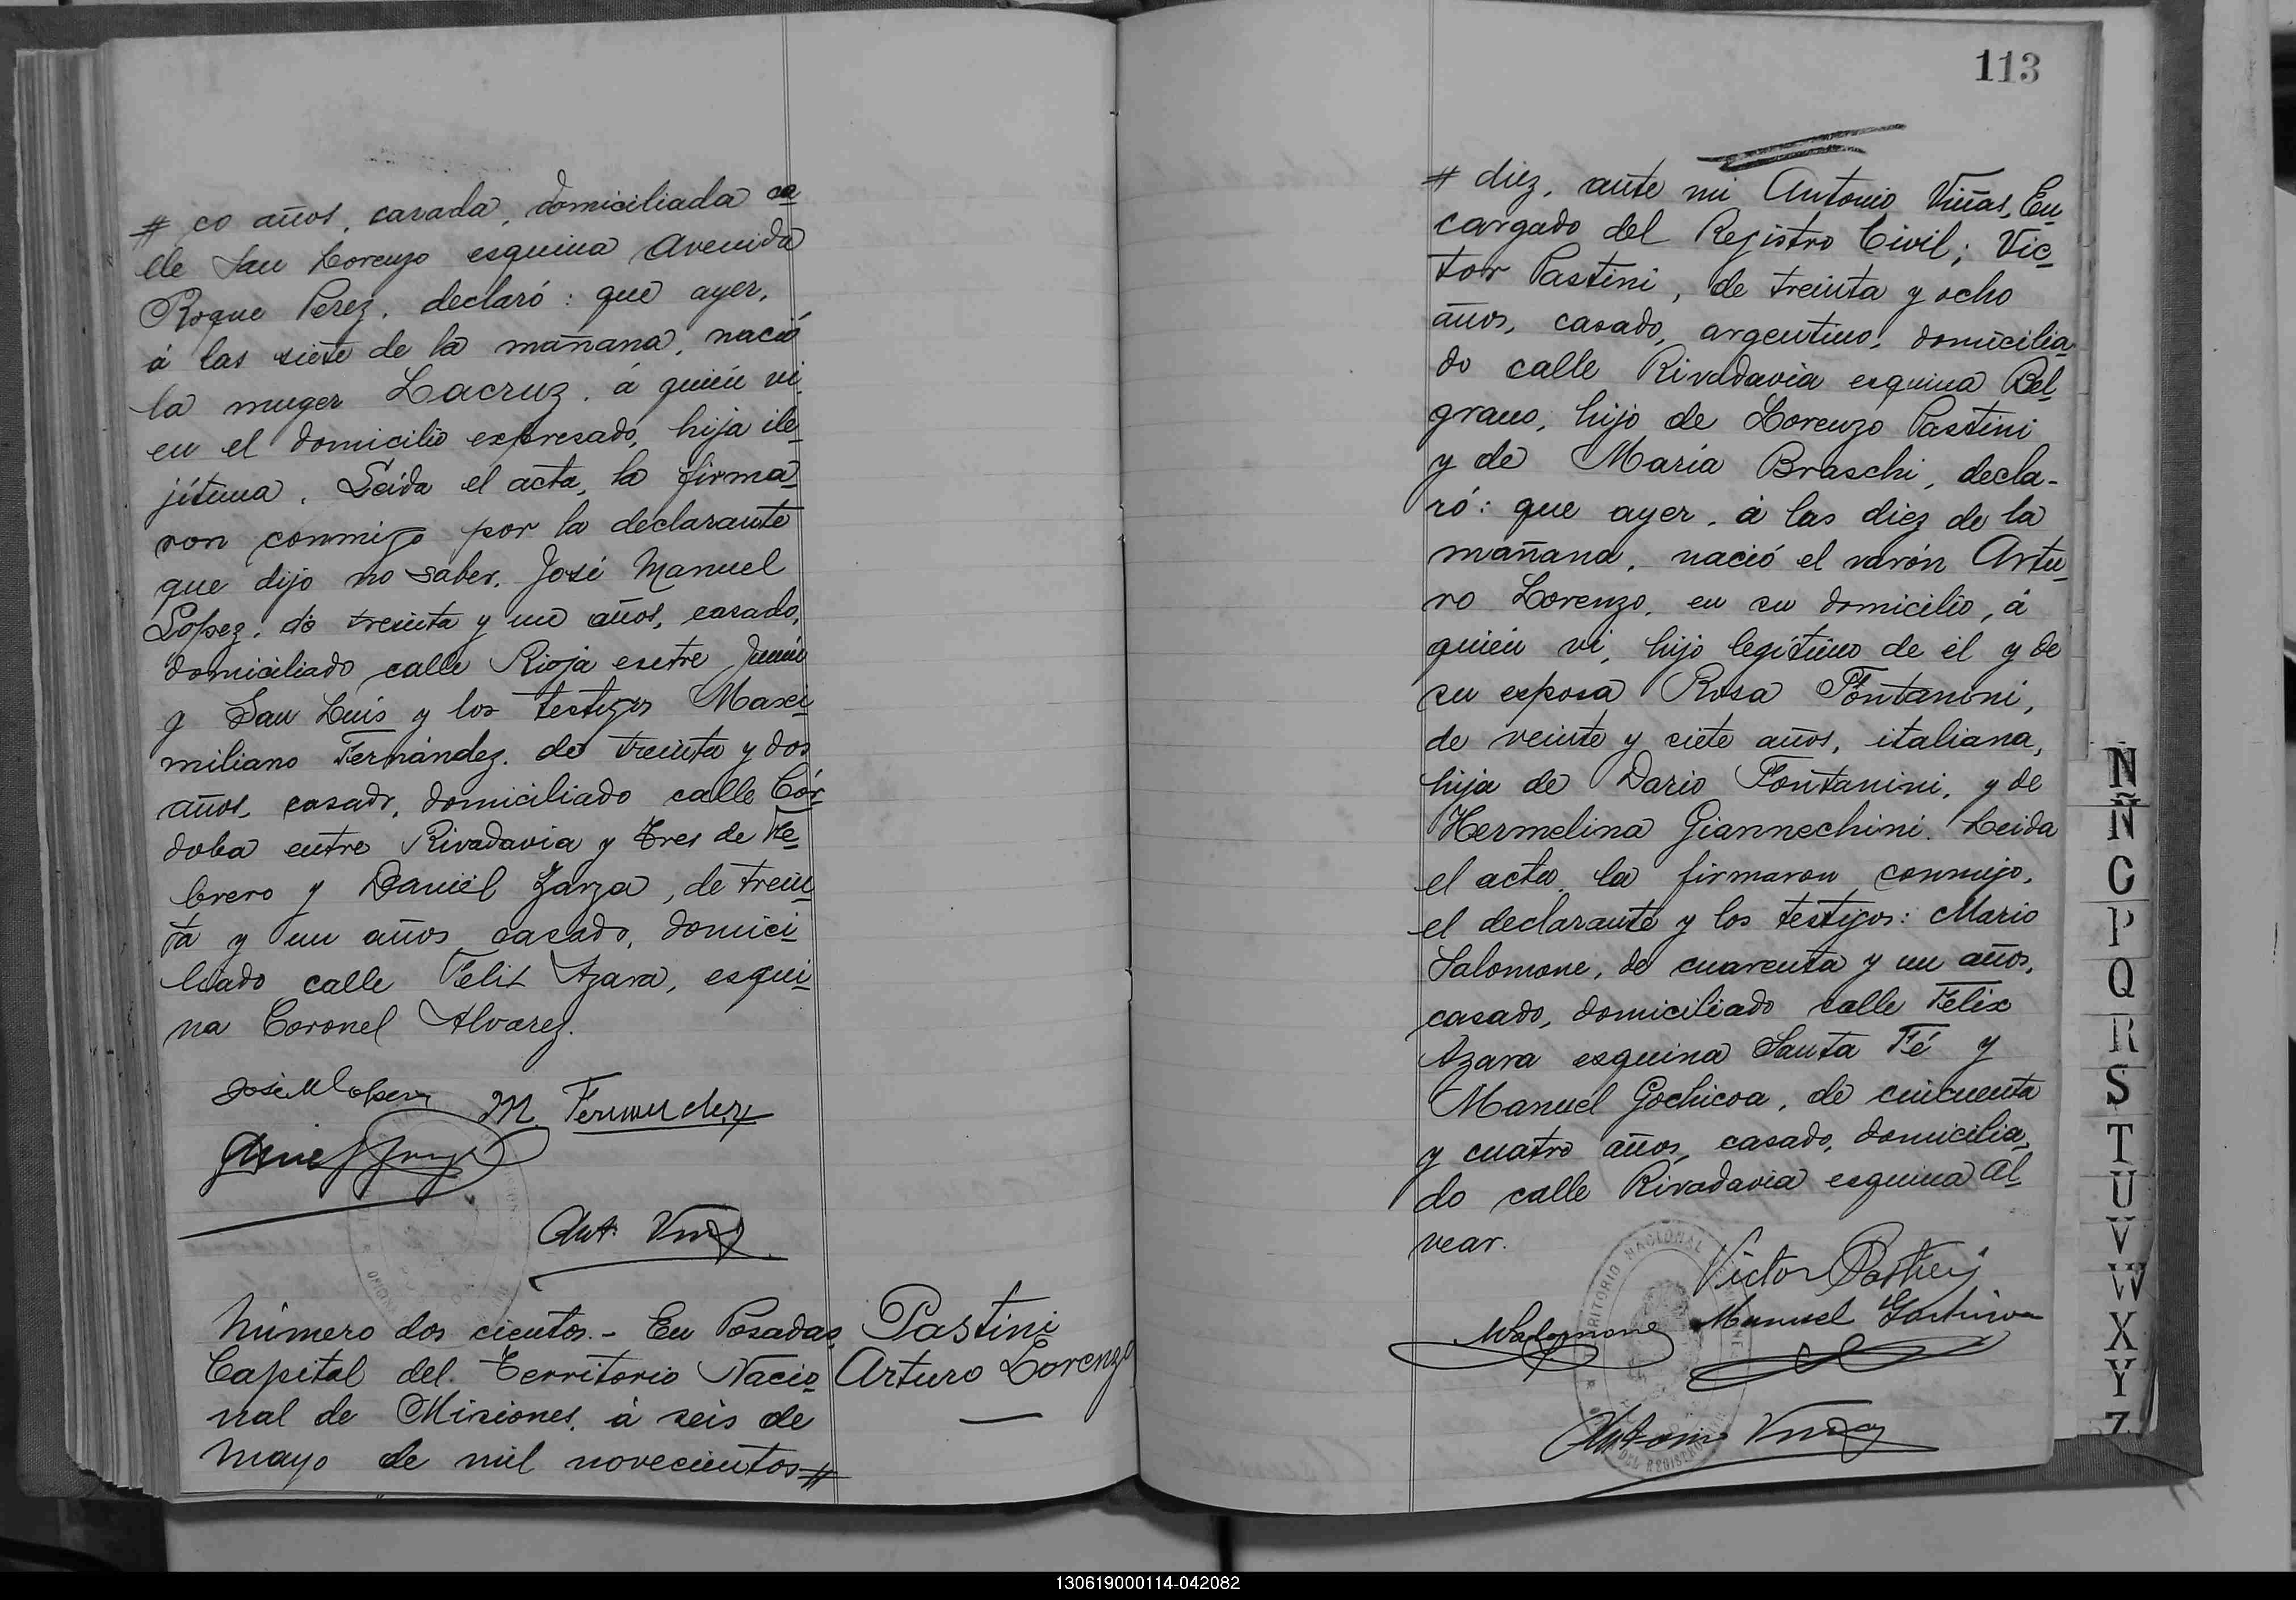 # co años, casada, domiciliada ca
lle San Lorenzo esquina Avenida
Roque Perez, declaró: que ayer,
á las siete de la mañana, nació
la muger Lacruz, á quién vi
en el domicilio expresado, hija ile
jítima. Leida el acta, la firma
ron conmigo por la declarante
que dijo no saber, José Manuel
Lopez, de treinta y un años, casado,
domiciliado calle Rioja entre Junin
y San Luis y los testigos Maxi
miliano Fernández, de treinta y dos
años, casado, domiciliado calle Cór
doba entre Rivadavia y Tres de Fe
brero y Daniel Zarza, de trein
ta y un años casado, domici
liado calle Felix Azara, esqui
na Coronel Alvarez.
José M Lopez M. Fernandez
Ant. Viñas
Número dos cientos.- En Posadas,
Capital del Territorio Nacio
nal de Misiones, á seis de
Mayo de mil novecientos #
Pastini
Arturo Lorenzo
113
# diez, ante mi Antonio Viñas, En
cargado del Registro Civil; Vic
tor Pastini, de treinta y ocho
años, casado, argentino, domicilia
do calle Rivadavia esquina Bel
grano, hijo de Lorenzo Pastini
y de María Braschi, decla-
ró: que ayer, á las diez de la
mañana, nació el varón Artu
ro Lorenzo, en su domicilio, á
quién vi, hijo legítimo de él y de
su esposa Rosa Fontanini,
de veinte y siete años, italiana,
hija de Dario Fontanini, y de
Hermelina Giannechini. Leida
el acta, la firmaron conmigo,
el declarante y los testigos: Mario
Salomone, de cuarenta y un años,
casado, domiciliado calle Felix
Azara esquina Santa Fé y
Manuel Gochicoa, de cincuenta
y cuatro años, casado, domicilia
do calle Rivadavia esquina Al
vear.
Victor Pastini
MSalomone Manuel Gochicoa
Antonio Viñas
TERRITORIO NACIONAL
DEL REGISTRO
N
Ñ
P
Q
R
S
T
U
V
W
X
Y
Z
130619000114-042082